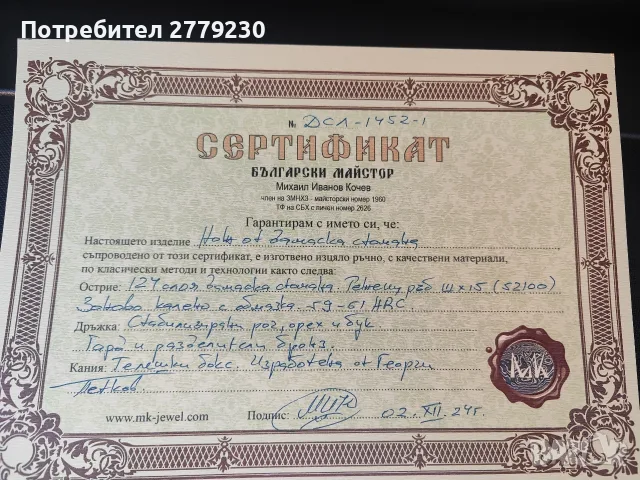 Потребител 2779230
№ ДСЛ-1452-1
СЕРТИФИКАТ
БЪЛГАРСКИ МАЙСТОР
Михаил Иванов Кочев
член на ЗМНХЗ - майсторски номер 1960
ТФ на СБХ с личен номер 2626
Гарантирам с името си, че:
Настоящето изделие Нож от дамаска стомана
съпроводено от този сертификат, е изготвено изцяло ръчно, с качествени материали,
по класически методи и технологии както следва:
Острие: 124 слоя дамаска стомана. Режещ ръб ШХ15 (52100)
Закова калено с облязка. 59-61 HRC.
Дръжка: Стабилизирани рог, орех и бук.
Гард и разделители бронз.
Кания: Телешки бокс. Изработена от Георги
Петков.
www.mk-jewel.com Подпис: 02.XII.24г.